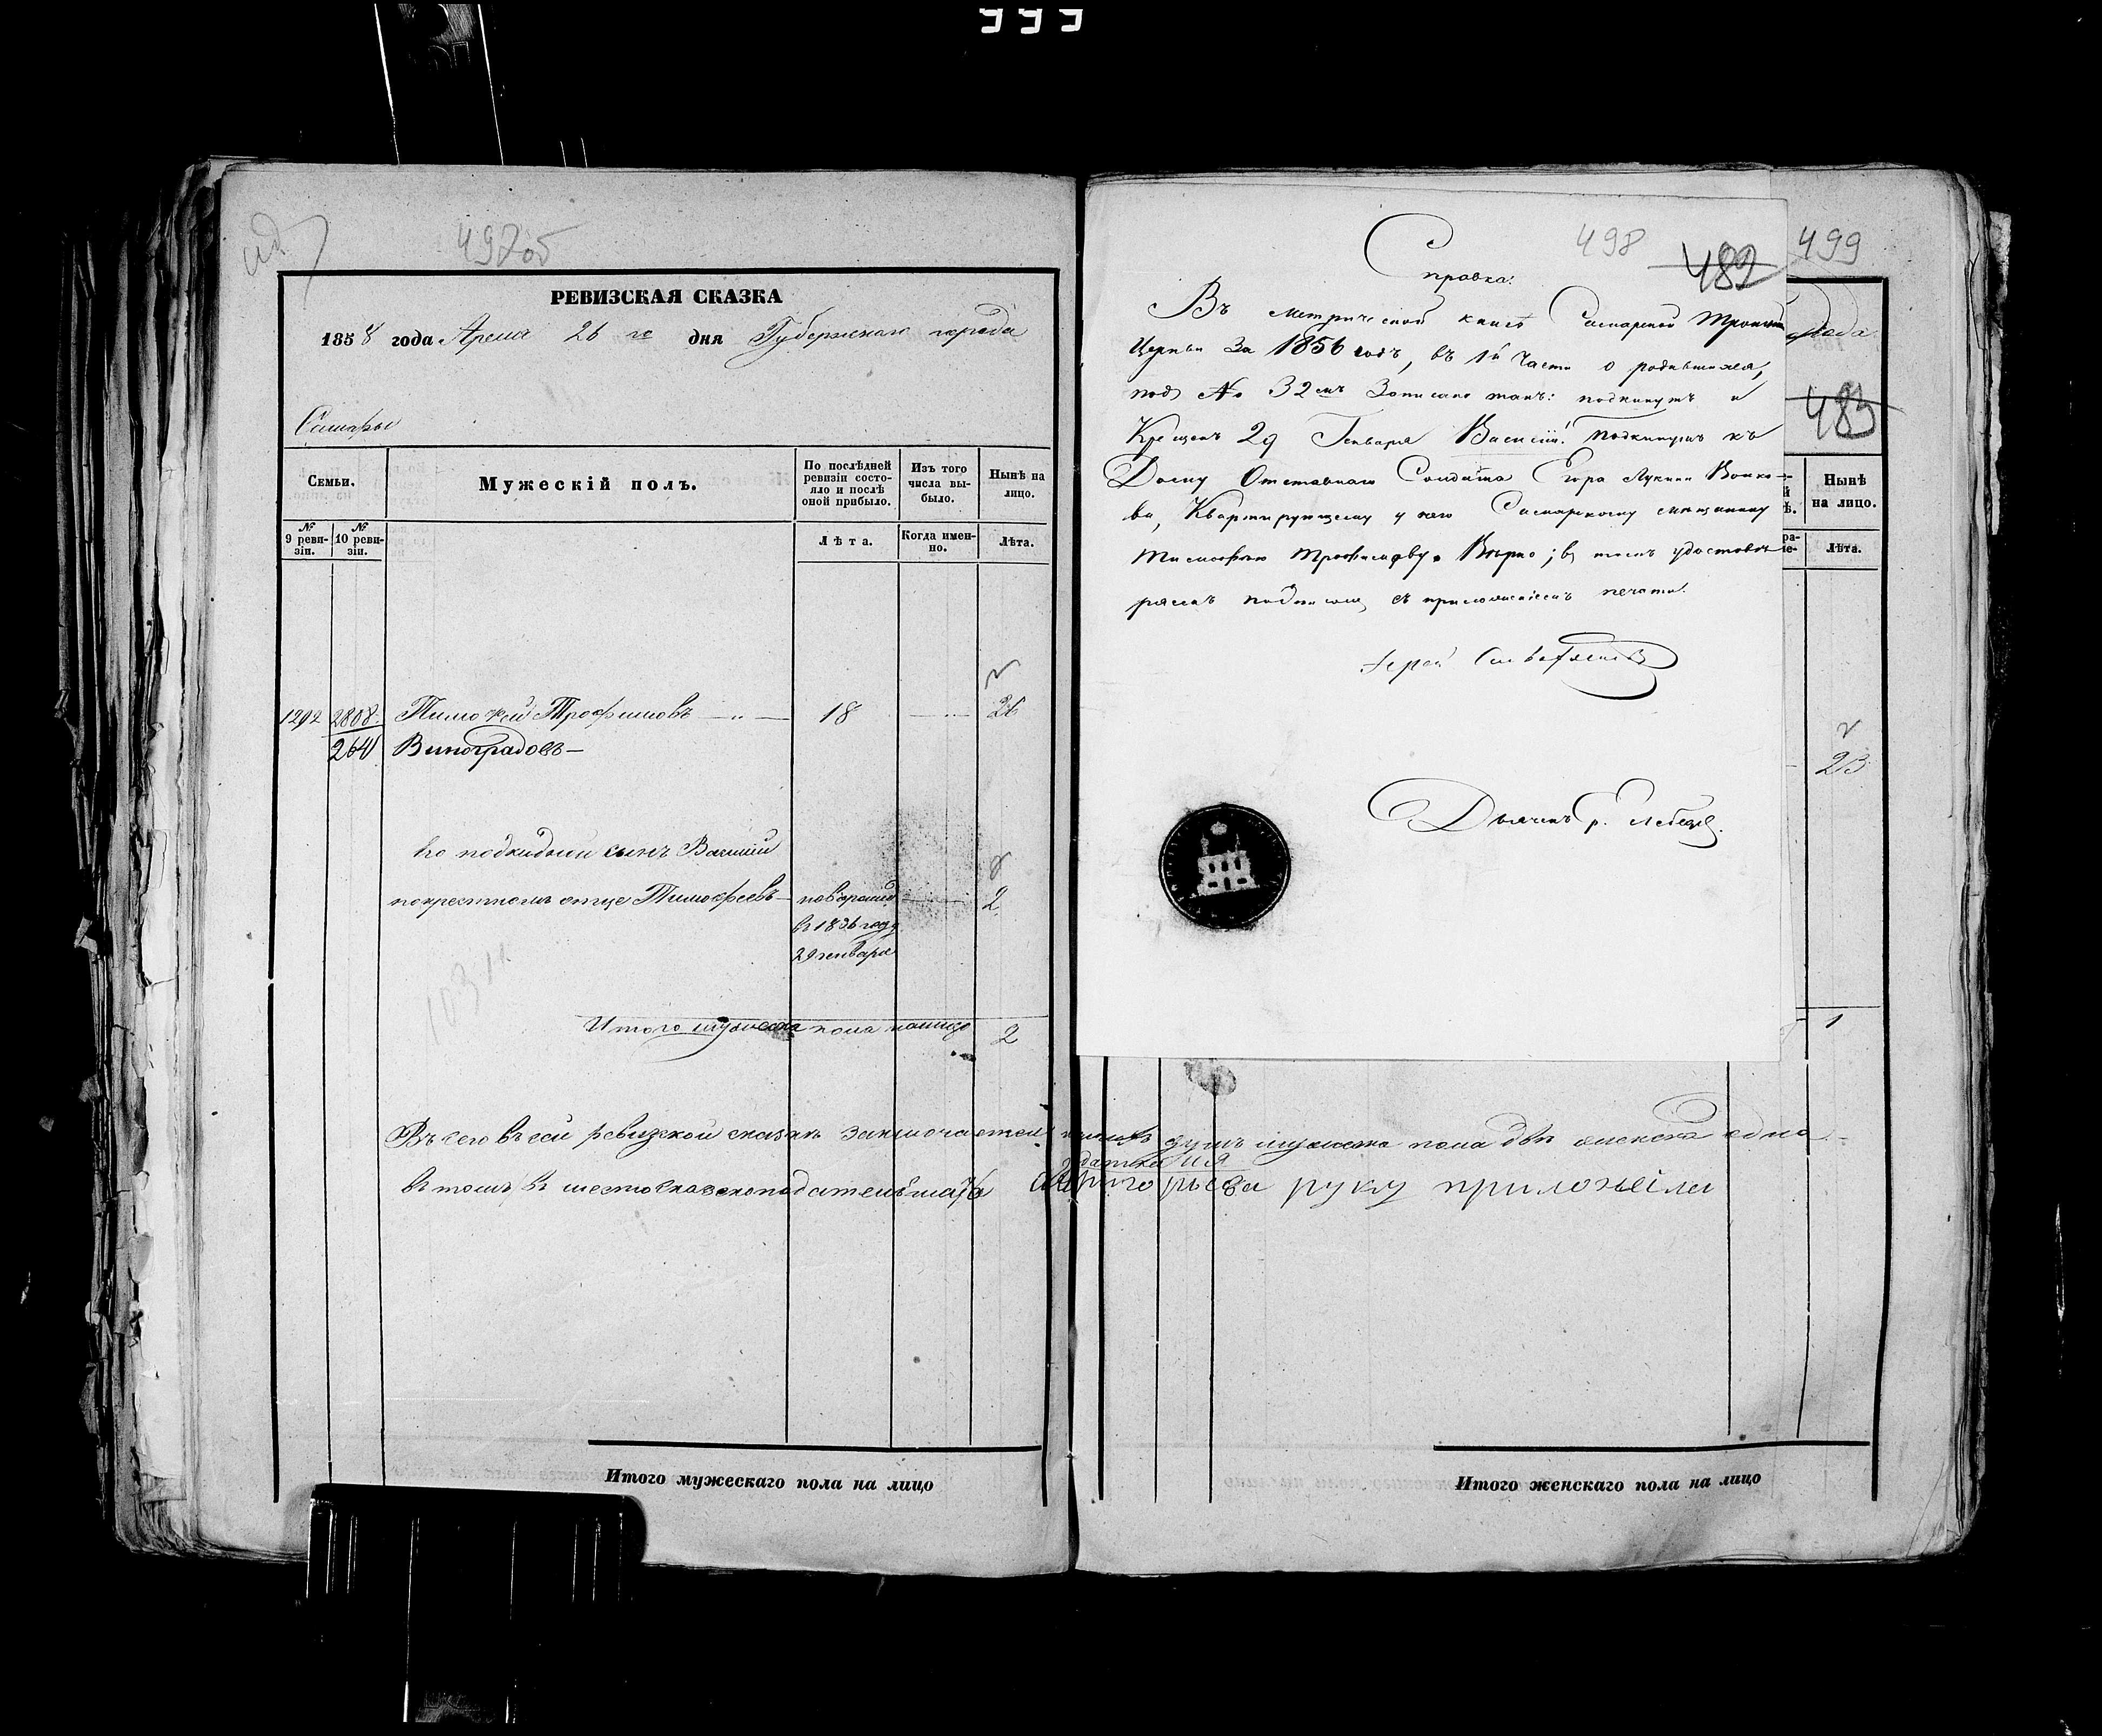 497об
РЕВИЗСКАЯ СКАЗКА
1858 года Апреля 26 го дня Губернскаго города
Самары
Семьи.
Мужескій полъ.
По послѣдней ревизіи состояло и послѣ оной прибыло.
Изъ того числа выбыло.
Нынѣ на лицо.
№ 9 ревизіи.
№ 10 ревизіи.
Лѣта.
Когда именно.
Лѣта.
1292 2808 Тимофей Трофимовъ 18 26
264 Виноградовъ
Его подкидной сынъ Василий
по крестном отце Тимофеевъ 2
в 1856 году
29 генваря
Итого мужеска пола налицо 2
Въ сего въ сей ревизской сказкѣ заключается душъ мужеска пола двѣ женска одна
в томъ, в место сказкоподателя
руку приложил
Итого мужескаго пола на лицо
498
482
Справка:
Въ метрической книгѣ Самарской Троицкой
Церкви За 1856 годъ, въ 1й Части о родившихся,
под № 32мъ Записано такъ: подкинутъ и
Крещенъ 29 Генваря Василій! Подкинутъ къ
Дому Отставнаго Солдата Егора Лукина Волко-
ва, Квартирующему у него Самарскому мещанину
Тимофею Трофимову. Вѣрно; в томъ удостовѣ-
ряемъ подписом, съ приложеніемъ печати.
Iерей
Дьячекъ
499
города
483
Нынѣ на лицо.
Лѣта.
23
1
Итого женскаго пола на лицо